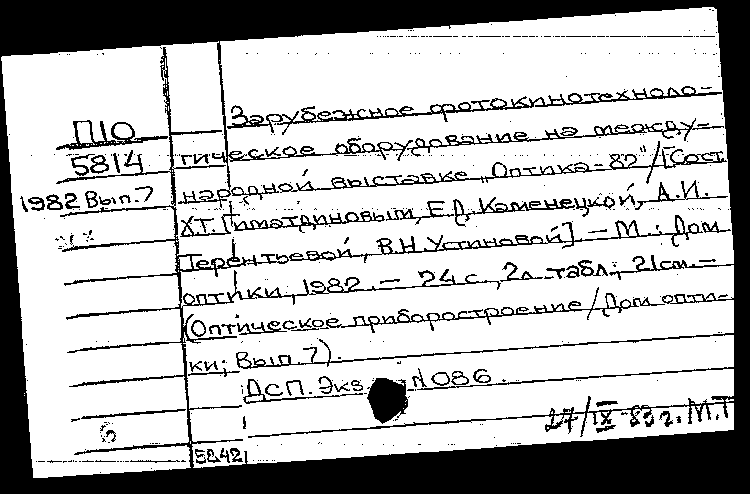 П10
5814
1982 Вып.7
Зарубежное фотокинотехноло-
гическое оборудование на между-
народной выставке „Оптика-82"/[Сост.
Х.Т. Гиматдиновым, Е.Д. Каменецкой, А.И.
Терентьевой, В.Н. Устиновой]. — М.: Дом
оптики, 1982. — 24 с., 2л. табл.; 21см. —
(Оптическое приборостроение/Дом опти-
ки; Вып. 7).
ДСП. Экз. N086.
27/IX-83г. М.Т
6
5842